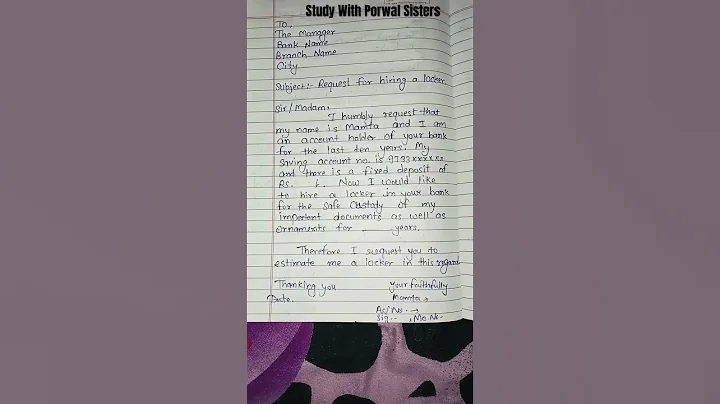 Study With Porwal Sisters
To,
The Manager
Bank Name
Branch Name
City
Subject:- Request for hiring a locker
Sir/Madam,
I humbly request that
my name is Mamta and I am
an account holder of your bank
for the last ten years. My
Saving account no. is 9733xxxxxx
and there is a fixed deposit of
Rs. . Now I would like
to hire a locker in your bank
for the safe custody of my
important documents as well as
ornaments for ____ years.
Therefore I request you to
estimate me a locker in this regard
Thanking you your faithfully
Date. Mamta
Ac/No. →
Sig.- , Mo No-